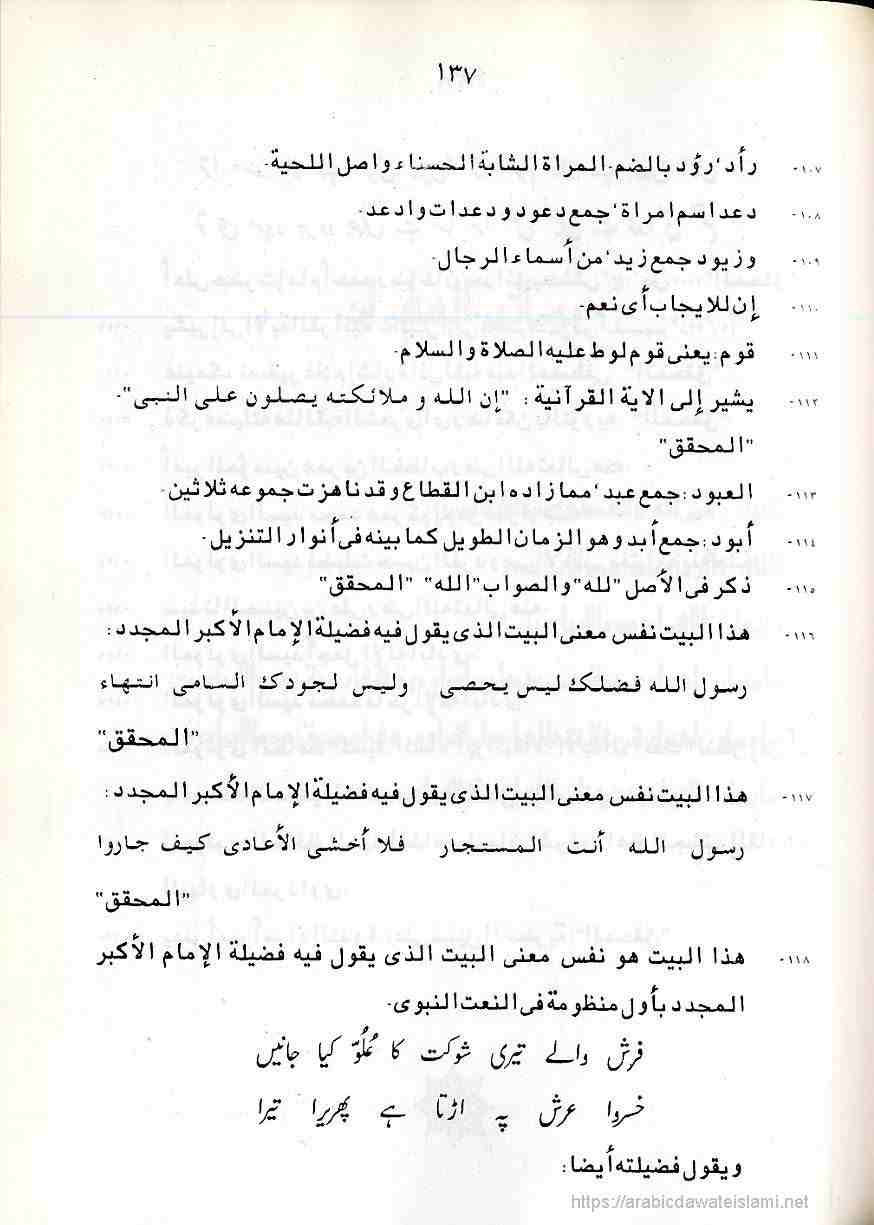 ١٣٧
١٠٧- رأد‘ رؤد بالضم. المراة الشابة الحسناء واصل اللحية.
١٠٨- دعد اسم امراة‘ جمع دعود ودعدات وادعد.
١٠٩- وزيود جمع زيد‘ من أسماء الرجال.
١١٠- إن للايجاب أى نعم.
١١١- قوم: يعنى قوم لوط عليه الصلاة والسلام.
١١٢- يشير إلى الاية القرآنية: "إن الله و ملائكته يصلون على النبى".
"المحقق"
١١٣- العبود: جمع عبد‘ مما زاده ابن القطاع وقد ناهزت جموعه ثلاثين.
١١٤- أبود: جمع أبد وهو الزمان الطويل كما بينه فى أنوار التنزيل.
١١٥- ذكر فى الأصل "لله" والصواب "الله" "المحقق"
١١٦- هذا البيت نفس معنى البيت الذى يقول فيه فضيلة الإمام الأكبر المجدد:
رسول الله فضلك ليس يحصى وليس لجودك السامى انتهاء
"المحقق"
١١٧- هذا البيت نفس معنى البيت الذى يقول فيه فضيلة الإمام الأكبر المجدد:
رسول الله أنت المستجار فلا أخشى الأعادى كيف جاروا
"المحقق"
١١٨- هذا البيت هو نفس معنى البيت الذى يقول فيه فضيلة الإمام الأكبر
المجدد بأول منظومة فى النعت النبوى.
فرش والے تیری شوکت کا عُلُوّ کیا جانیں
خسروا عرش پہ اڑتا ہے پھریرا تیرا
ويقول فضيلته أيضا:
https://arabicdawateislami.net